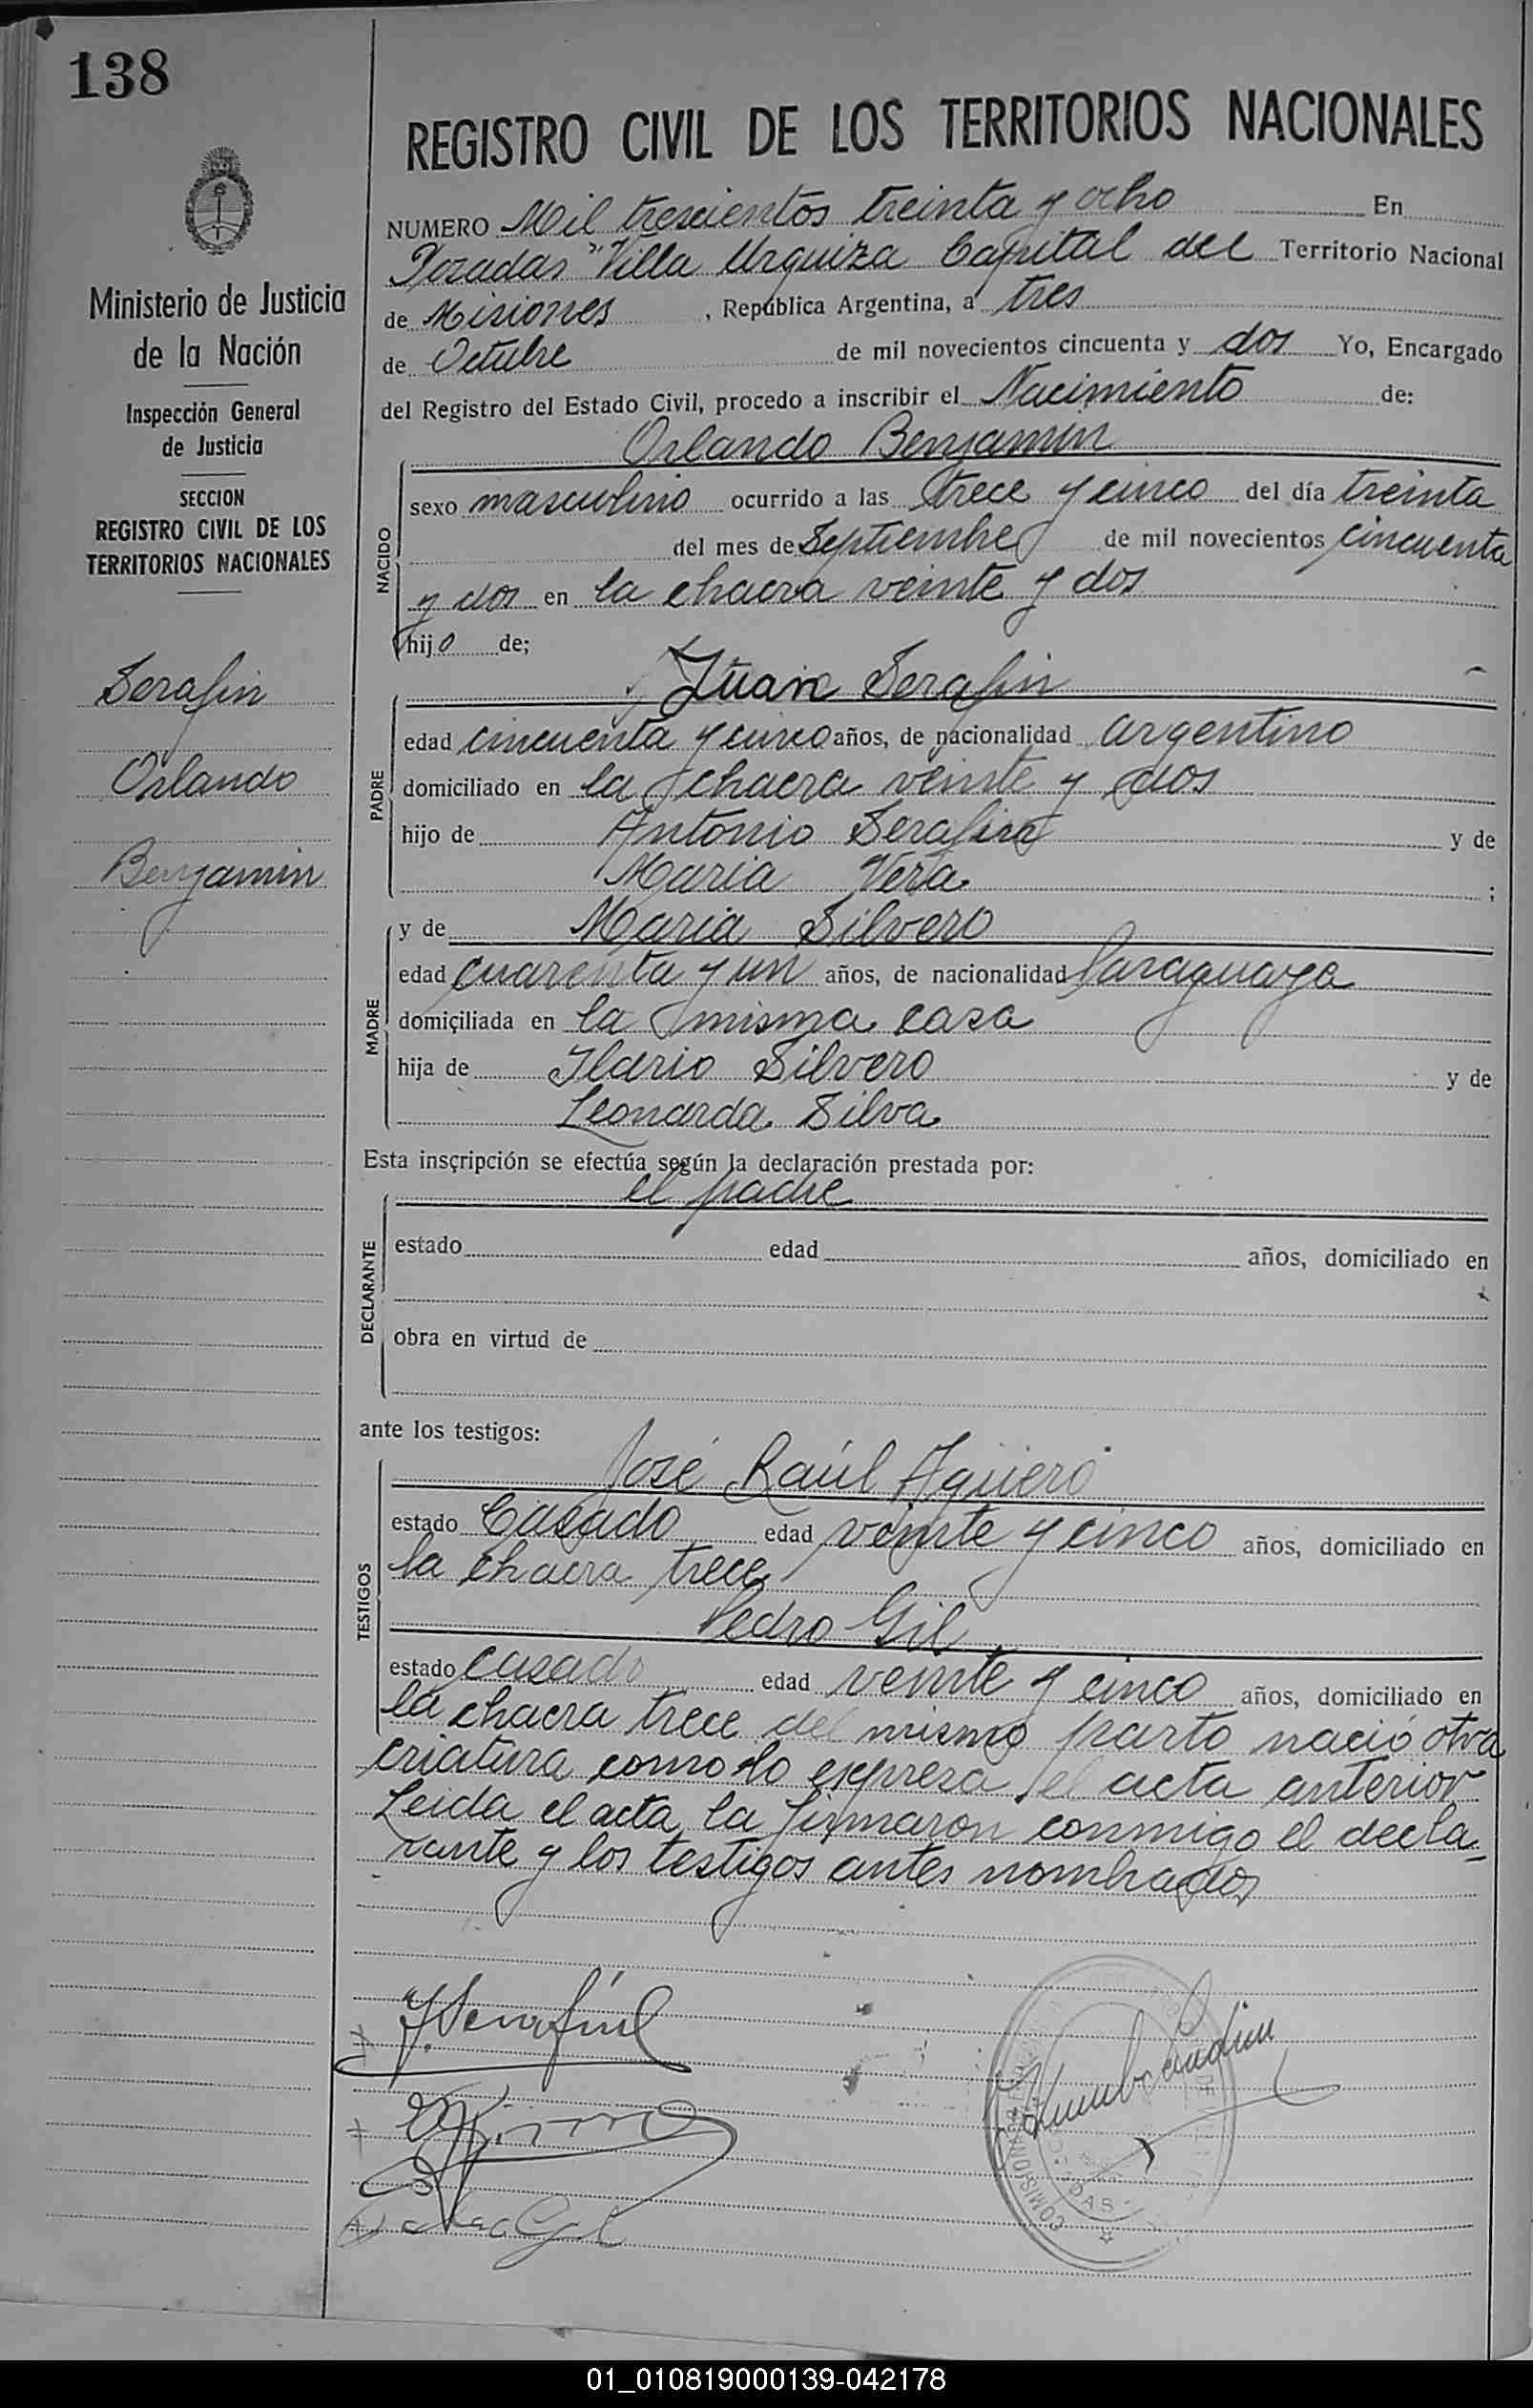 138
REGISTRO CIVIL DE LOS TERRITORIOS NACIONALES
Ministerio de Justicia
de la Nación
Inspección General
de Justicia
SECCION
REGISTRO CIVIL DE LOS
TERRITORIOS NACIONALES
Serafin
Orlando
Benjamin
NUMERO Mil trescientos treinta y ocho En
Posadas "Villa Urquiza Capital del Territorio Nacional
de Misiones, República Argentina, a tres
de Octubre de mil novecientos cincuenta y dos Yo, Encargado
del Registro del Estado Civil, procedo a inscribir el Nacimiento de:
Orlando Benjamin
NACIDO
sexo masculino ocurrido a las trece y cinco del día treinta
del mes de Septiembre de mil novecientos cincuenta
y dos en la chacra veinte y dos
hijo de;
Juan Serafin
PADRE
edad cincuenta y cinco años, de nacionalidad argentino
domiciliado en la chacra veinte y dos
hijo de Antonio Serafin y de
Maria Vera ;
y de Maria Silvero
MADRE
edad cuarenta y un años, de nacionalidad Paraguaya
domiciliada en la misma casa
hija de Ilario Silvero y de
Leonarda Silva
Esta inscripción se efectúa según la declaración prestada por:
el padre
DECLARANTE
estado edad años, domiciliado en
obra en virtud de
ante los testigos:
José Raúl Agüero
TESTIGOS
estado Casado edad veinte y cinco años, domiciliado en
la chacra trece
Pedro Gil
estado casado edad veinte y cinco años, domiciliado en
la chacra trece del mismo parto nació otra
criatura como lo expresa el acta anterior
Leida el acta la firmaron conmigo el decla=
rante y los testigos antes nombrados
J. Serafin
01_010819000139-042178